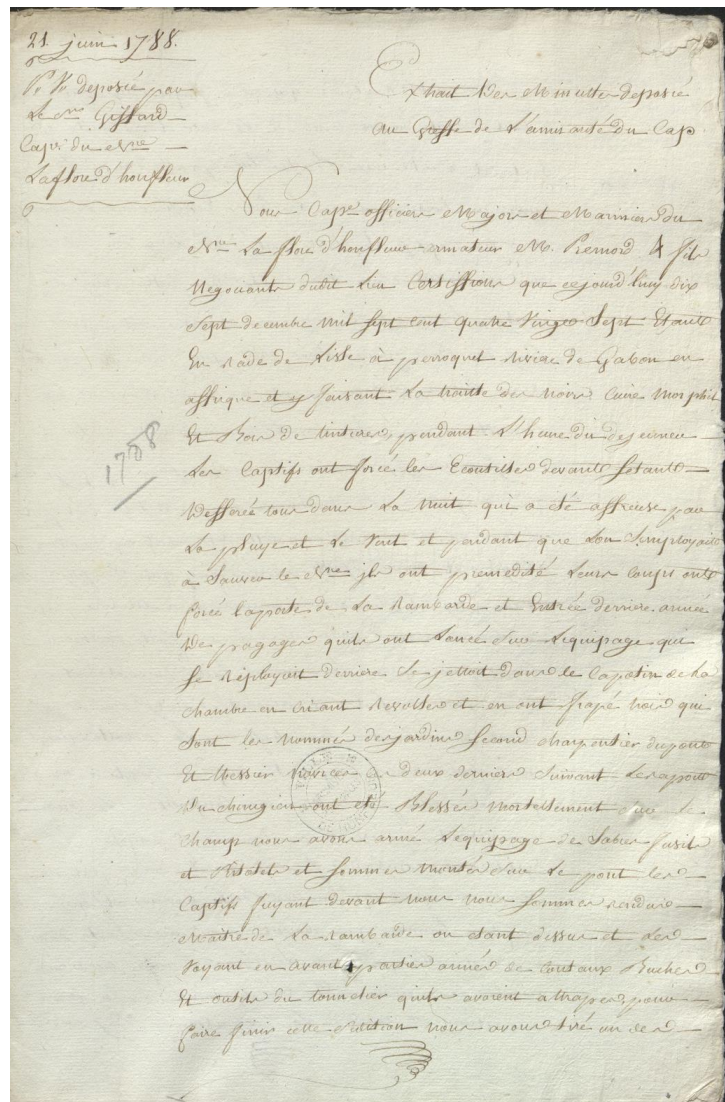 21. juin 1788.
P. V. deposé par
Le Sr Giffard
Cap. du Nre
La flore d'honfleur
Extrait des Minuttes deposée
au Greffe de L'amirauté du Cap
Nous Capne officiers Majors et Mariniers du
Nre La flore d'honfleur armateur M. Premord & fils
Negotiants dudit Lieu Certiffions que cejourd'huy dix
Sept decembre Mil Sept cent quatre Vingt Sept Etant
En rade de Lisle à perroquet riviere de Gabon en
affrique et y faisant La traitte des noirs Cuire Morphil
Et Bois de tintures, pendant L'heure du dejeuner
Les Captifs ont forcé les Ecoutilles devant Setant
Defferée tous dans La nuit qui a été affreuse par
La pluye et Le Vent et pendant que Lon Semployait
à Sauver le Nre jls ont premedité Leurs coups ont
forcé Laporte de La rambarde et Entrée derriere armée
De pagages quils ont Lancé Sur Lequipage qui
Se reployoit derriere Se jettoit dans le Capotin de La
chambre en criant revolte et en ont frapé trois qui
Sont les nommés desjardins Second charpentier dupont
Et Messier Novices Les deux derniers Suivant Lerapport
Du chirurgien ont été Blessés mortellement Sur le
champ nous avons armé Lequipage de Sabres fusils
et Pistolets et Sommes montés Sur Le pont les
Captifs fuyant devant nous nous Sommes rendus
Maitre de La rambarde en etant dessus et Les
Voyant en avant partie armés de Coutaux Buches
Et outils du tonnelier quils avoient attrapés, pour
faire finir cette Sedition nous avons tiré un des
1788